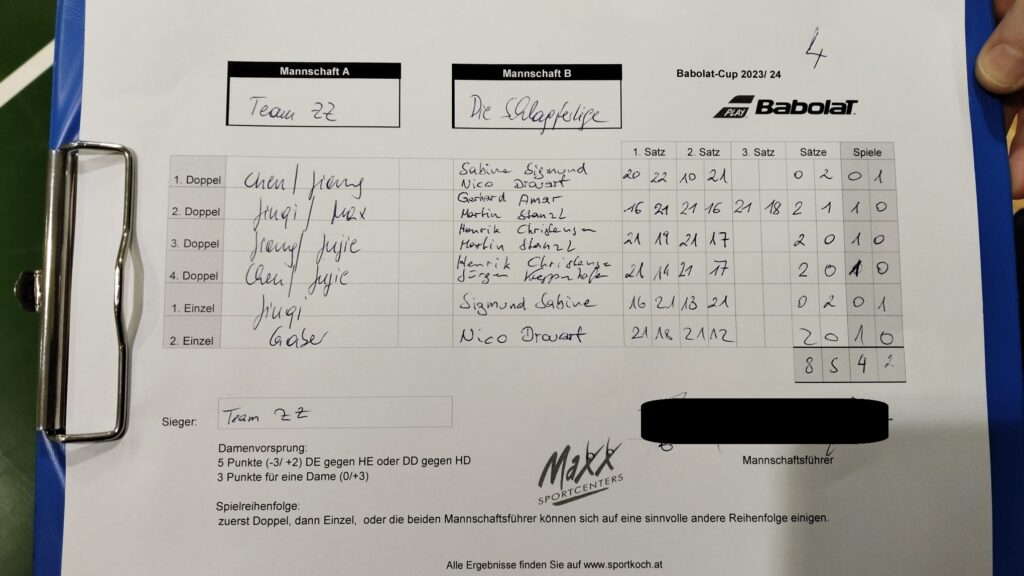 4
Mannschaft A
Mannschaft B
Babolat-Cup 2023/ 24
Team ZZ
Die Schlagfertige
PLAY BabolaT
1. Satz 2. Satz 3. Satz Sätze Spiele
1. Doppel Chen/ Jiang Sabine Sigmund Nico Drouart 20 22 10 21 0 2 0 1
2. Doppel Jingi/ Max Gerhard Amar Martin Stanzl 16 21 21 16 21 18 2 1 1 0
3. Doppel Jiang/ Jujie Henrik Christensen Martin Stanzl 21 19 21 17 2 0 1 0
4. Doppel Chen/ Jujie Henrik Christense Jürgen 21 14 21 17 2 0 1 0
1. Einzel Jingi Sigmund Sabine 16 21 13 21 0 2 0 1
2. Einzel Gaber Nico Drouart 21 18 21 12 2 0 1 0
8 5 4 2
Sieger: Team ZZ
Mannschaftsführer
Damenvorsprung:
5 Punkte (-3/ +2) DE gegen HE oder DD gegen HD
3 Punkte für eine Dame (0/+3)
MaXX
SPORTCENTERS
Spielreihenfolge:
zuerst Doppel, dann Einzel, oder die beiden Mannschaftsführer können sich auf eine sinnvolle andere Reihenfolge einigen.
Alle Ergebnisse finden Sie auf www.sportkoch.at